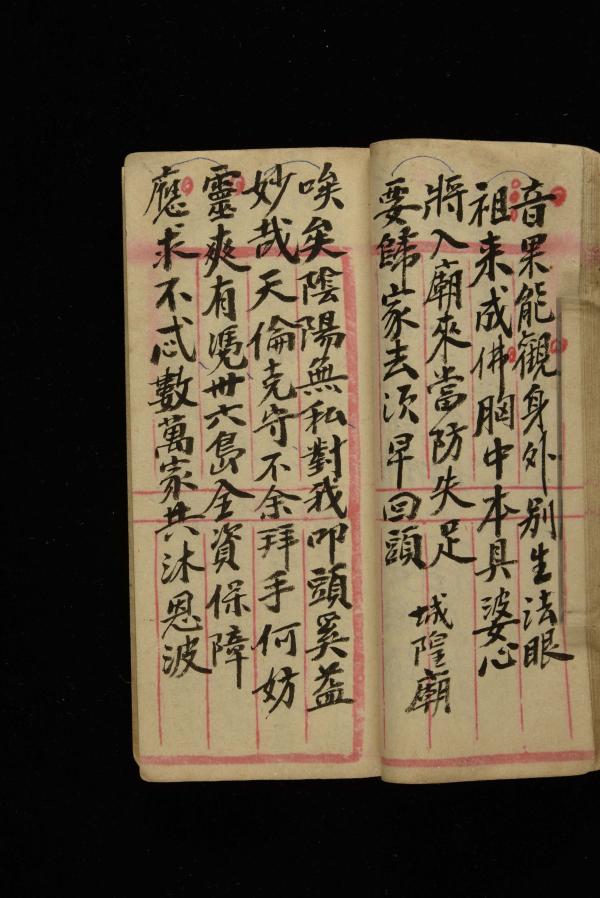 音果能觀身外別生法眼
祖来成佛胸中本具婆心
將入廟來當防失足
要歸家去須早回頭
城隍廟
唉矣陰陽無私對我叩頭奚益
妙哉天倫克守不余拜手何妨
靈爽有憑卅六島全資保障
應求不忒數萬家共沐恩波